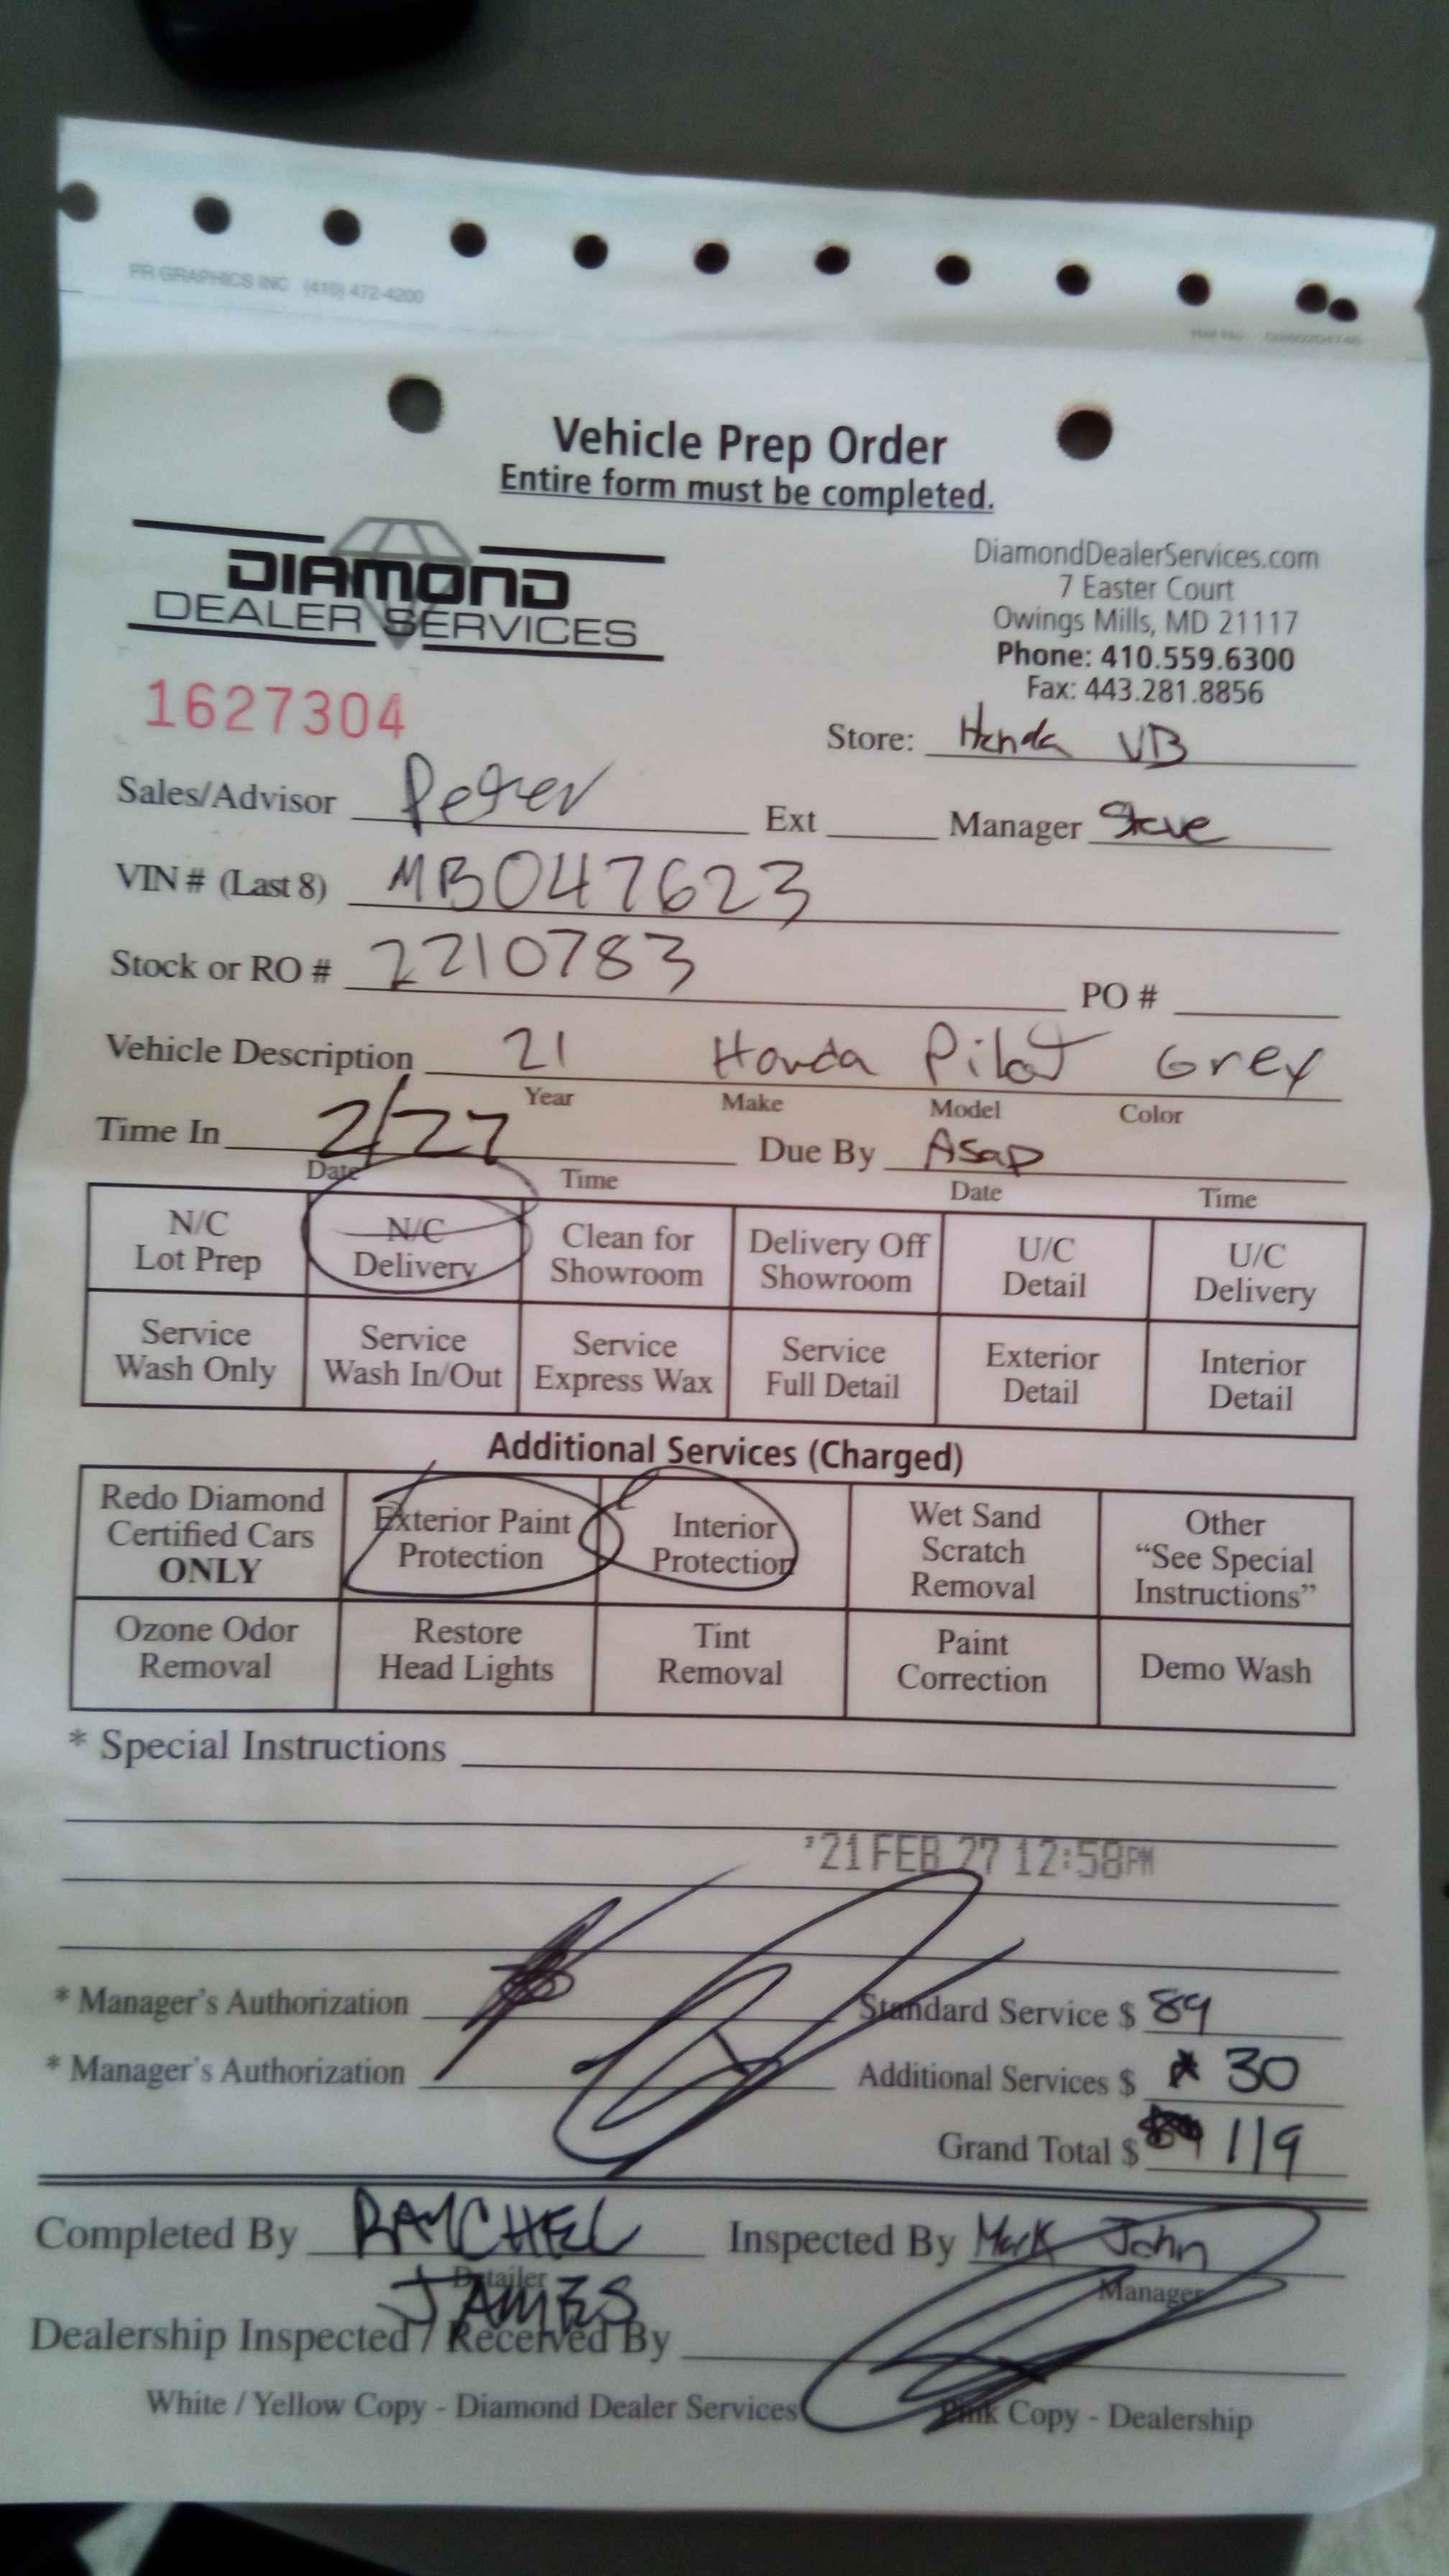 PR GRAPHICS INC (410) 472-4200
Vehicle Prep Order
Entire form must be completed.
DIAMOND
DEALER SERVICES
DiamondDealerServices.com
7 Easter Court
Owings Mills, MD 21117
Phone: 410.559.6300
Fax: 443.281.8856
1627304
Store: Honda VB
Sales/Advisor Peter Ext Manager Steve
VIN # (Last 8) MB047623
Stock or RO # 2210783 PO #
Vehicle Description 21 Honda Pilot Grey
Year Make Model Color
Time In 2/27 Due By Asap
Date Time Date Time
N/C Lot Prep N/C Delivery Clean for Showroom Delivery Off Showroom U/C Detail U/C Delivery
Service Wash Only Service Wash In/Out Service Express Wax Service Full Detail Exterior Detail Interior Detail
Additional Services (Charged)
Redo Diamond Certified Cars ONLY Exterior Paint Protection Interior Protection Wet Sand Scratch Removal Other "See Special Instructions"
Ozone Odor Removal Restore Head Lights Tint Removal Paint Correction Demo Wash
* Special Instructions
'21 FEB 27 12:58PM
* Manager's Authorization Standard Service $ 89
* Manager's Authorization Additional Services $ 30
Grand Total $ 119
Completed By RAYCHEL Inspected By Mark John
Detailer Manager
JAMES
Dealership Inspected / Received By
White / Yellow Copy - Diamond Dealer Services Pink Copy - Dealership